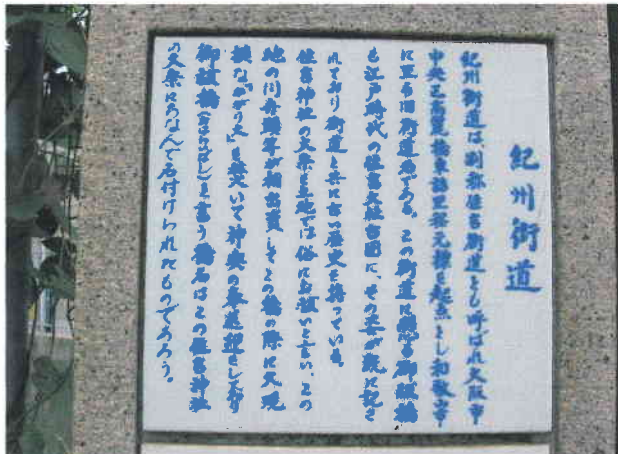 紀州街道
紀州街道は別称住吉街道とも呼ばれ大阪市
中央区高麗橋東詰里程元標を起点とし和歌山市
に至る旧街道である。この街道に懸る御祓橋
も江戸時代の住吉大社古図に、その走が既に記さ
れており街道と共に古い歴史を持っている。
住吉神社の大祭を地では俗にお祓いと言い、この
地の川舟頭等が相出資しその橋の際に大規
模な「かがり火」を焚いて神輿の奉迎迎をし
御祓橋(はらいばし)と言う橋名はこの住吉神社
の大祭にちなんで名付けられたものであろう。